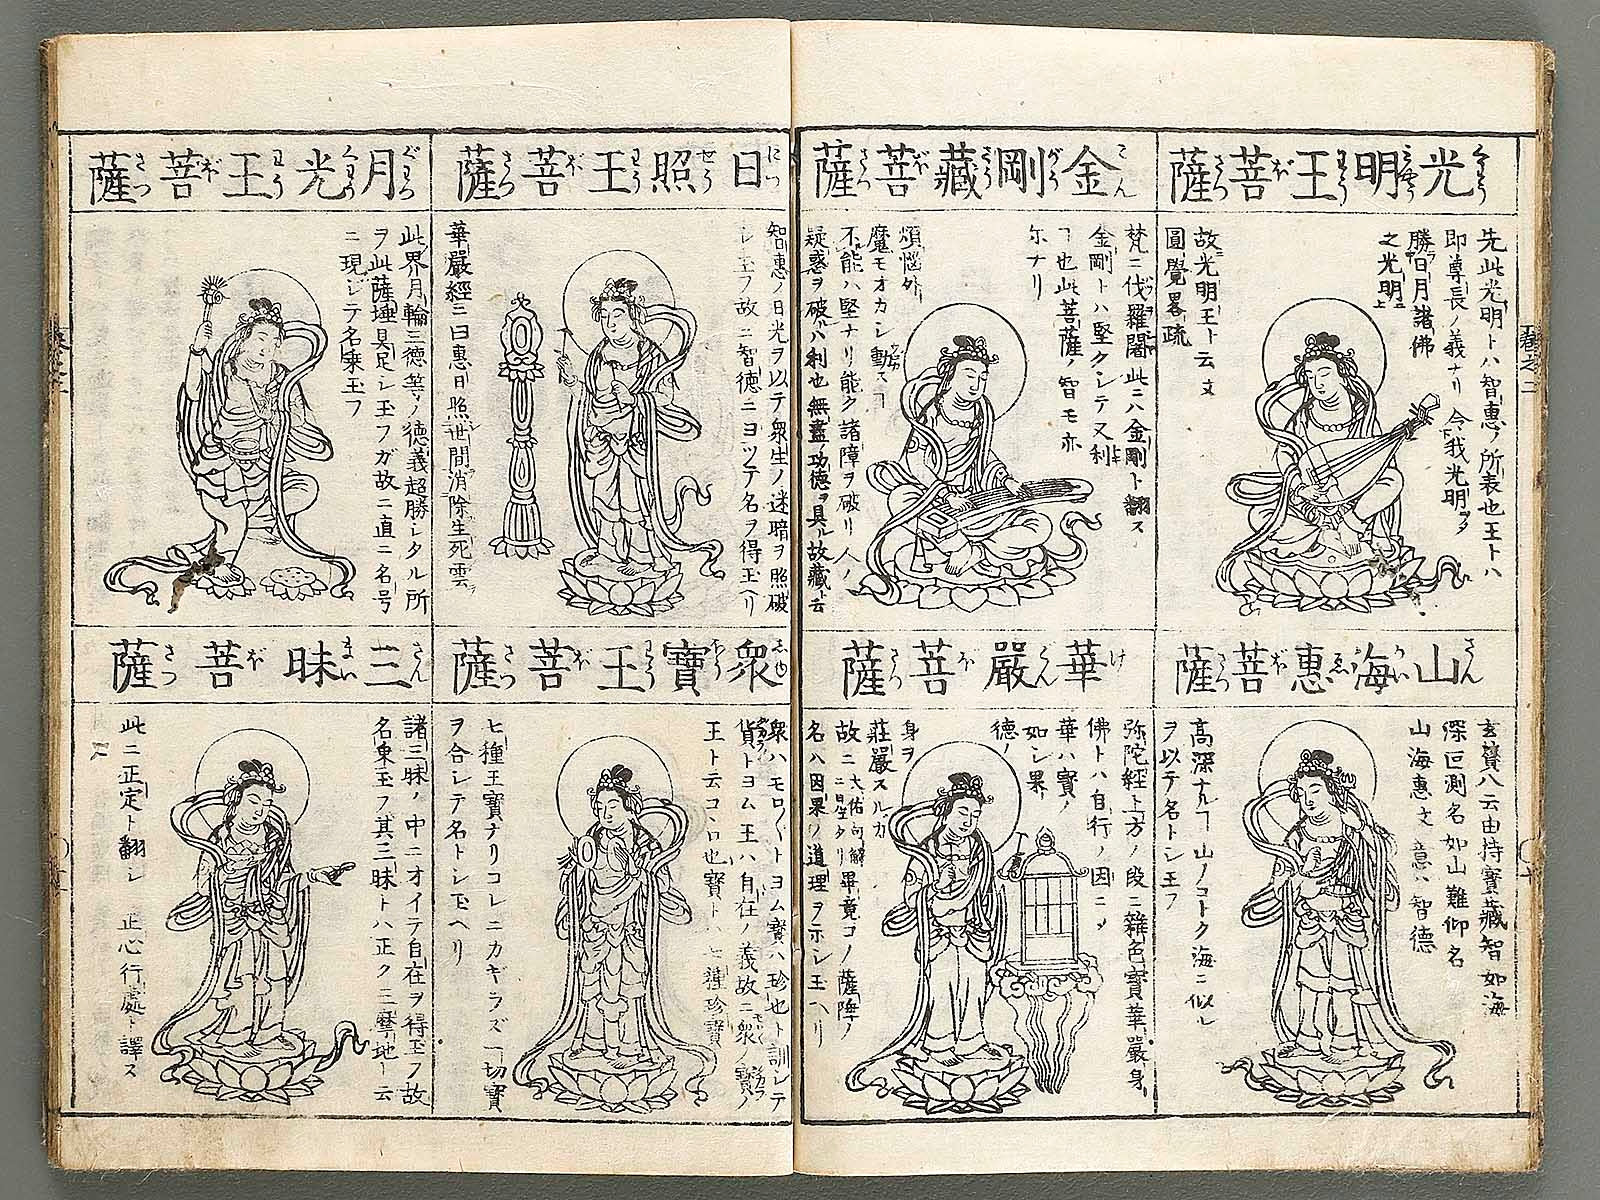 光明王菩薩
先此光明トハ智惠ノ所表也王トハ
即尊長ノ義ナリ令我光明ヲ
勝日月諸佛
之光明上
故光明王ト云文
圓覺畧疏
金剛藏菩薩
梵ニ伐羅闍此ニハ金剛ト翻ス
金剛トハ堅クシテ又利
ヿ也此菩薩ノ智モ亦
尓ナリ
煩惱外
魔モオカシ動スヿ
不能ハ堅ナリ能ク諸障ヲ破リ人ノ
疑惑ヲ破ハ利也無盡ノ功德ヲ具ル故藏ト云
山海惠菩薩
玄賛八云由持寶藏智如海
深叵測名如山難仰名
山海惠文意ハ智德
高深ナルヿ山ノコトク海ニ似ル
ヲ以テ名トシ王フ
華嚴菩薩
弥陀經上方ノ段ニ雜色寶華嚴身
佛トハ自行ノ因ニメ
華ハ實ノ
如シ果ノ
德ノ
身ヲ
莊嚴スルカ
故ニ
名ハ因果ノ道理ヲ示シ玉ヘリ
日照王菩薩
智惠ノ日光ヲ以テ衆生ノ迷暗ヲ照破
シ玉フ故ニ智德ニヨツテ名ヲ得玉ヘリ
華嚴經三曰惠日照世間消除生死雲
月光王菩薩
此界月輪三徳等ノ德義超勝シタル所
ヲ此薩埵具足シ玉フガ故ニ直ニ名号
ニ現ジテ名乘玉フ
衆寶王菩薩
衆ハモロ〱トヨム寶ハ珍也ト訓シテ
貨トヨム王ハ自在ノ義故ニ衆ノ寶ノ
王ト云コヽロ也寶トハ七種珍寶
七種王寶ナリコレニカギラズ一切寶
ヲ合シテ名トシ玉ヘリ
三昧菩薩
諸三昧ノ中ニオイテ自在ヲ得玉フ故
名乘玉フ其三昧トハ正ク三摩地ト云
此ニ正定ト翻シ正心行處ト譯ス